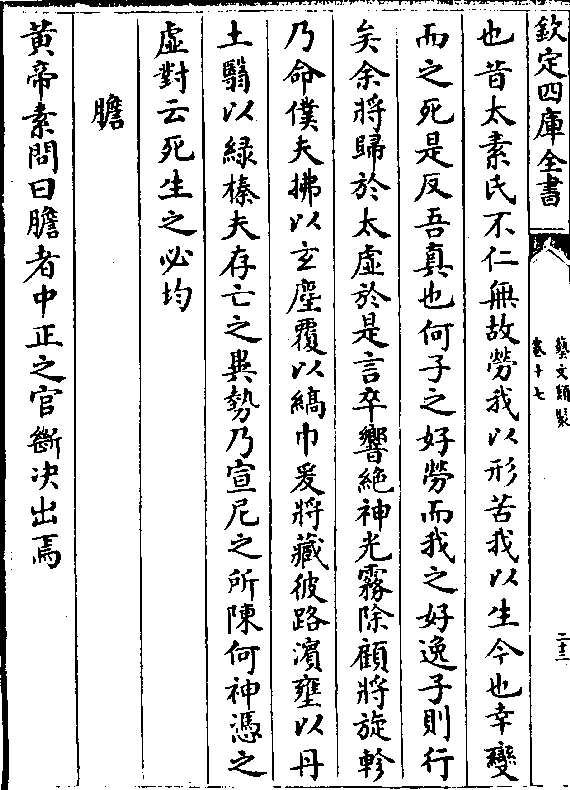 欽定四庫全書
藝文類聚
卷十七
二十三
也昔太素氏不仁無故勞我以形苦我以生今也幸變
而之死是反吾真也何子之好勞而我之好逸子則行
矣余將歸於太虛於是言卒響絶神光霧除顧將旋軫
乃命僕夫拂以玄塵覆以縞巾爰將藏彼路濱壅以丹
土翳以緑榛夫存亡之異勢乃宣尼之所陳何神憑之
虛對云死生之必均
膽
黄帝素問曰膽者中正之官斷决出焉